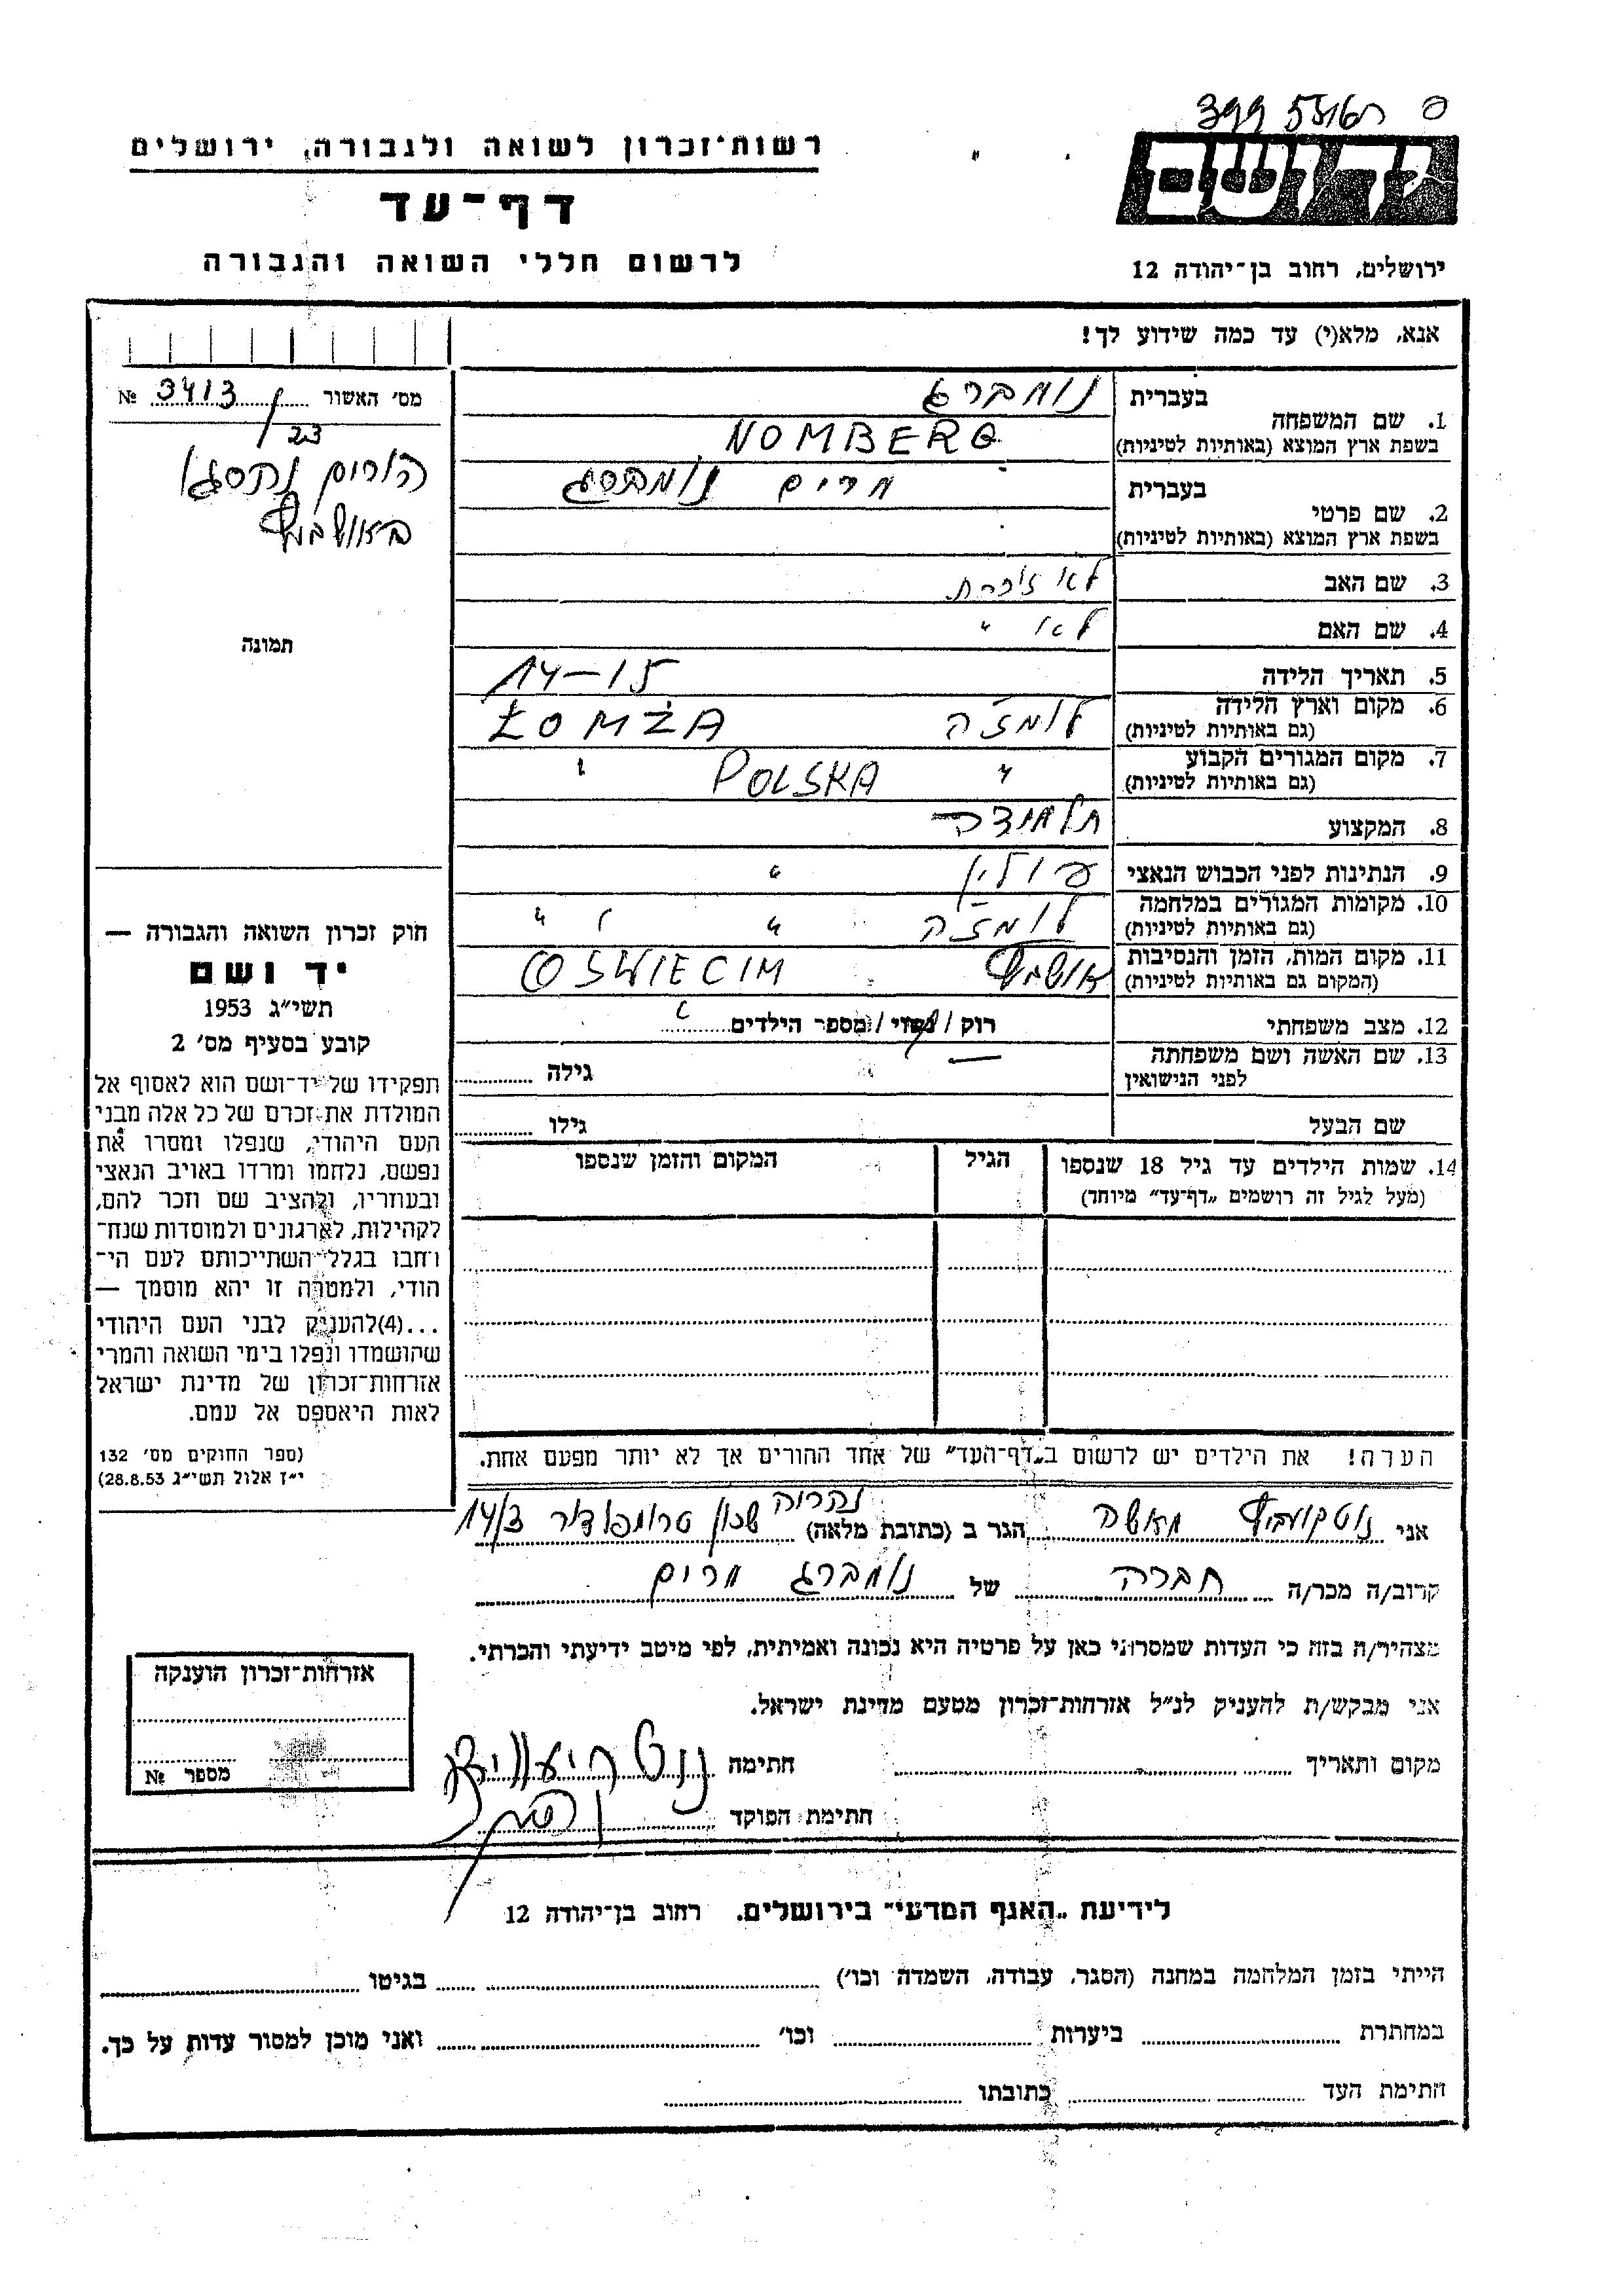 399 55
רשות־זכרון לשואה ולגבורה, ירושלים
יד ושם
דף־עד
לרשום חללי השואה והגבורה
ירושלים, רחוב בן־יהודה 12
אנא, מלא(י) עד כמה שידוע לך!
מס' האשור 3413 №
23
הורים נספו
באושביץ
תמונה
בעברית נומברג
1. שם המשפחה
בשפת ארץ המוצא (באותיות לטיניות) NOMBERG
בעברית מרים נומברג
2. שם פרטי
בשפת ארץ המוצא (באותיות לטיניות)
3. שם האב לא זוכרת
4. שם האם לא "
5. תאריך הלידה 14-15
6. מקום וארץ הלידה לומז'ה ŁOMŻA
(גם באותיות לטיניות)
7. מקום המגורים הקבוע " POLSKA "
(גם באותיות לטיניות)
8. המקצוע תלמידה
9. הנתינות לפני הכבוש הנאצי פולין "
10. מקומות המגורים במלחמה לומז'ה " " "
(גם באותיות לטיניות)
11. מקום המות, הזמן והנסיבות אושביץ OSWIECIM
(המקום גם באותיות לטיניות)
12. מצב משפחתי רוק / נשוי / מספר הילדים
13. שם האשה ושם משפחתה גילה
לפני הנישואין
שם הבעל גילו
14. שמות הילדים עד גיל 18 שנספו הגיל המקום והזמן שנספו
(מעל לגיל זה רושמים „דף־עד" מיוחד)
הערה! את הילדים יש לרשום ב„דף־העד" של אחד ההורים אך לא יותר מפעם אחת.
חוק זכרון השואה והגבורה —
יד ושם
תשי״ג 1953
קובע בסעיף מס' 2
תפקידו של יד־ושם הוא לאסוף אל
המולדת את זכרם של כל אלה מבני
העם היהודי, שנפלו ומסרו את
נפשם, נלחמו ומרדו באויב הנאצי
ובעוזריו, ולהציב שם וזכר להם,
לקהילות, לארגונים ולמוסדות שנח־
רבו בגלל השתייכותם לעם הי־
הודי, ולמטרה זו יהא מוסמך —
...(4)להעניק לבני העם היהודי
שהושמדו ונפלו בימי השואה והמרי
אזרחות־זכרון של מדינת ישראל
לאות היאספם אל עמם.
(ספר החוקים מס' 132
י״ז אלול תשי״ג 28.8.53)
אני נוטקוביץ מאשה הגר ב (כתובת מלאה) נהריה שכון טרומפלדור 14/3
קרוב/ה מכר/ה חברה של נומברג מרים
מצהיר/ה בזה כי העדות שמסרתי כאן על פרטיה היא נכונה ואמיתית, לפי מיטב ידיעתי והכרתי.
אני מבקש/ת להעניק לנ״ל אזרחות־זכרון מטעם מדינת ישראל.
מקום ותאריך חתימה
חתימת הפוקד
אזרחות־זכרון הוענקה
מספר №
לידיעת „האגף המדעי" בירושלים, רחוב בן־יהודה 12
הייתי בזמן המלחמה במחנה (הסגר, עבודה, השמדה וכו') בגיטו
במחתרת ביערות וכו' ואני מוכן למסור עדות על כך.
חתימת העד כתובתו